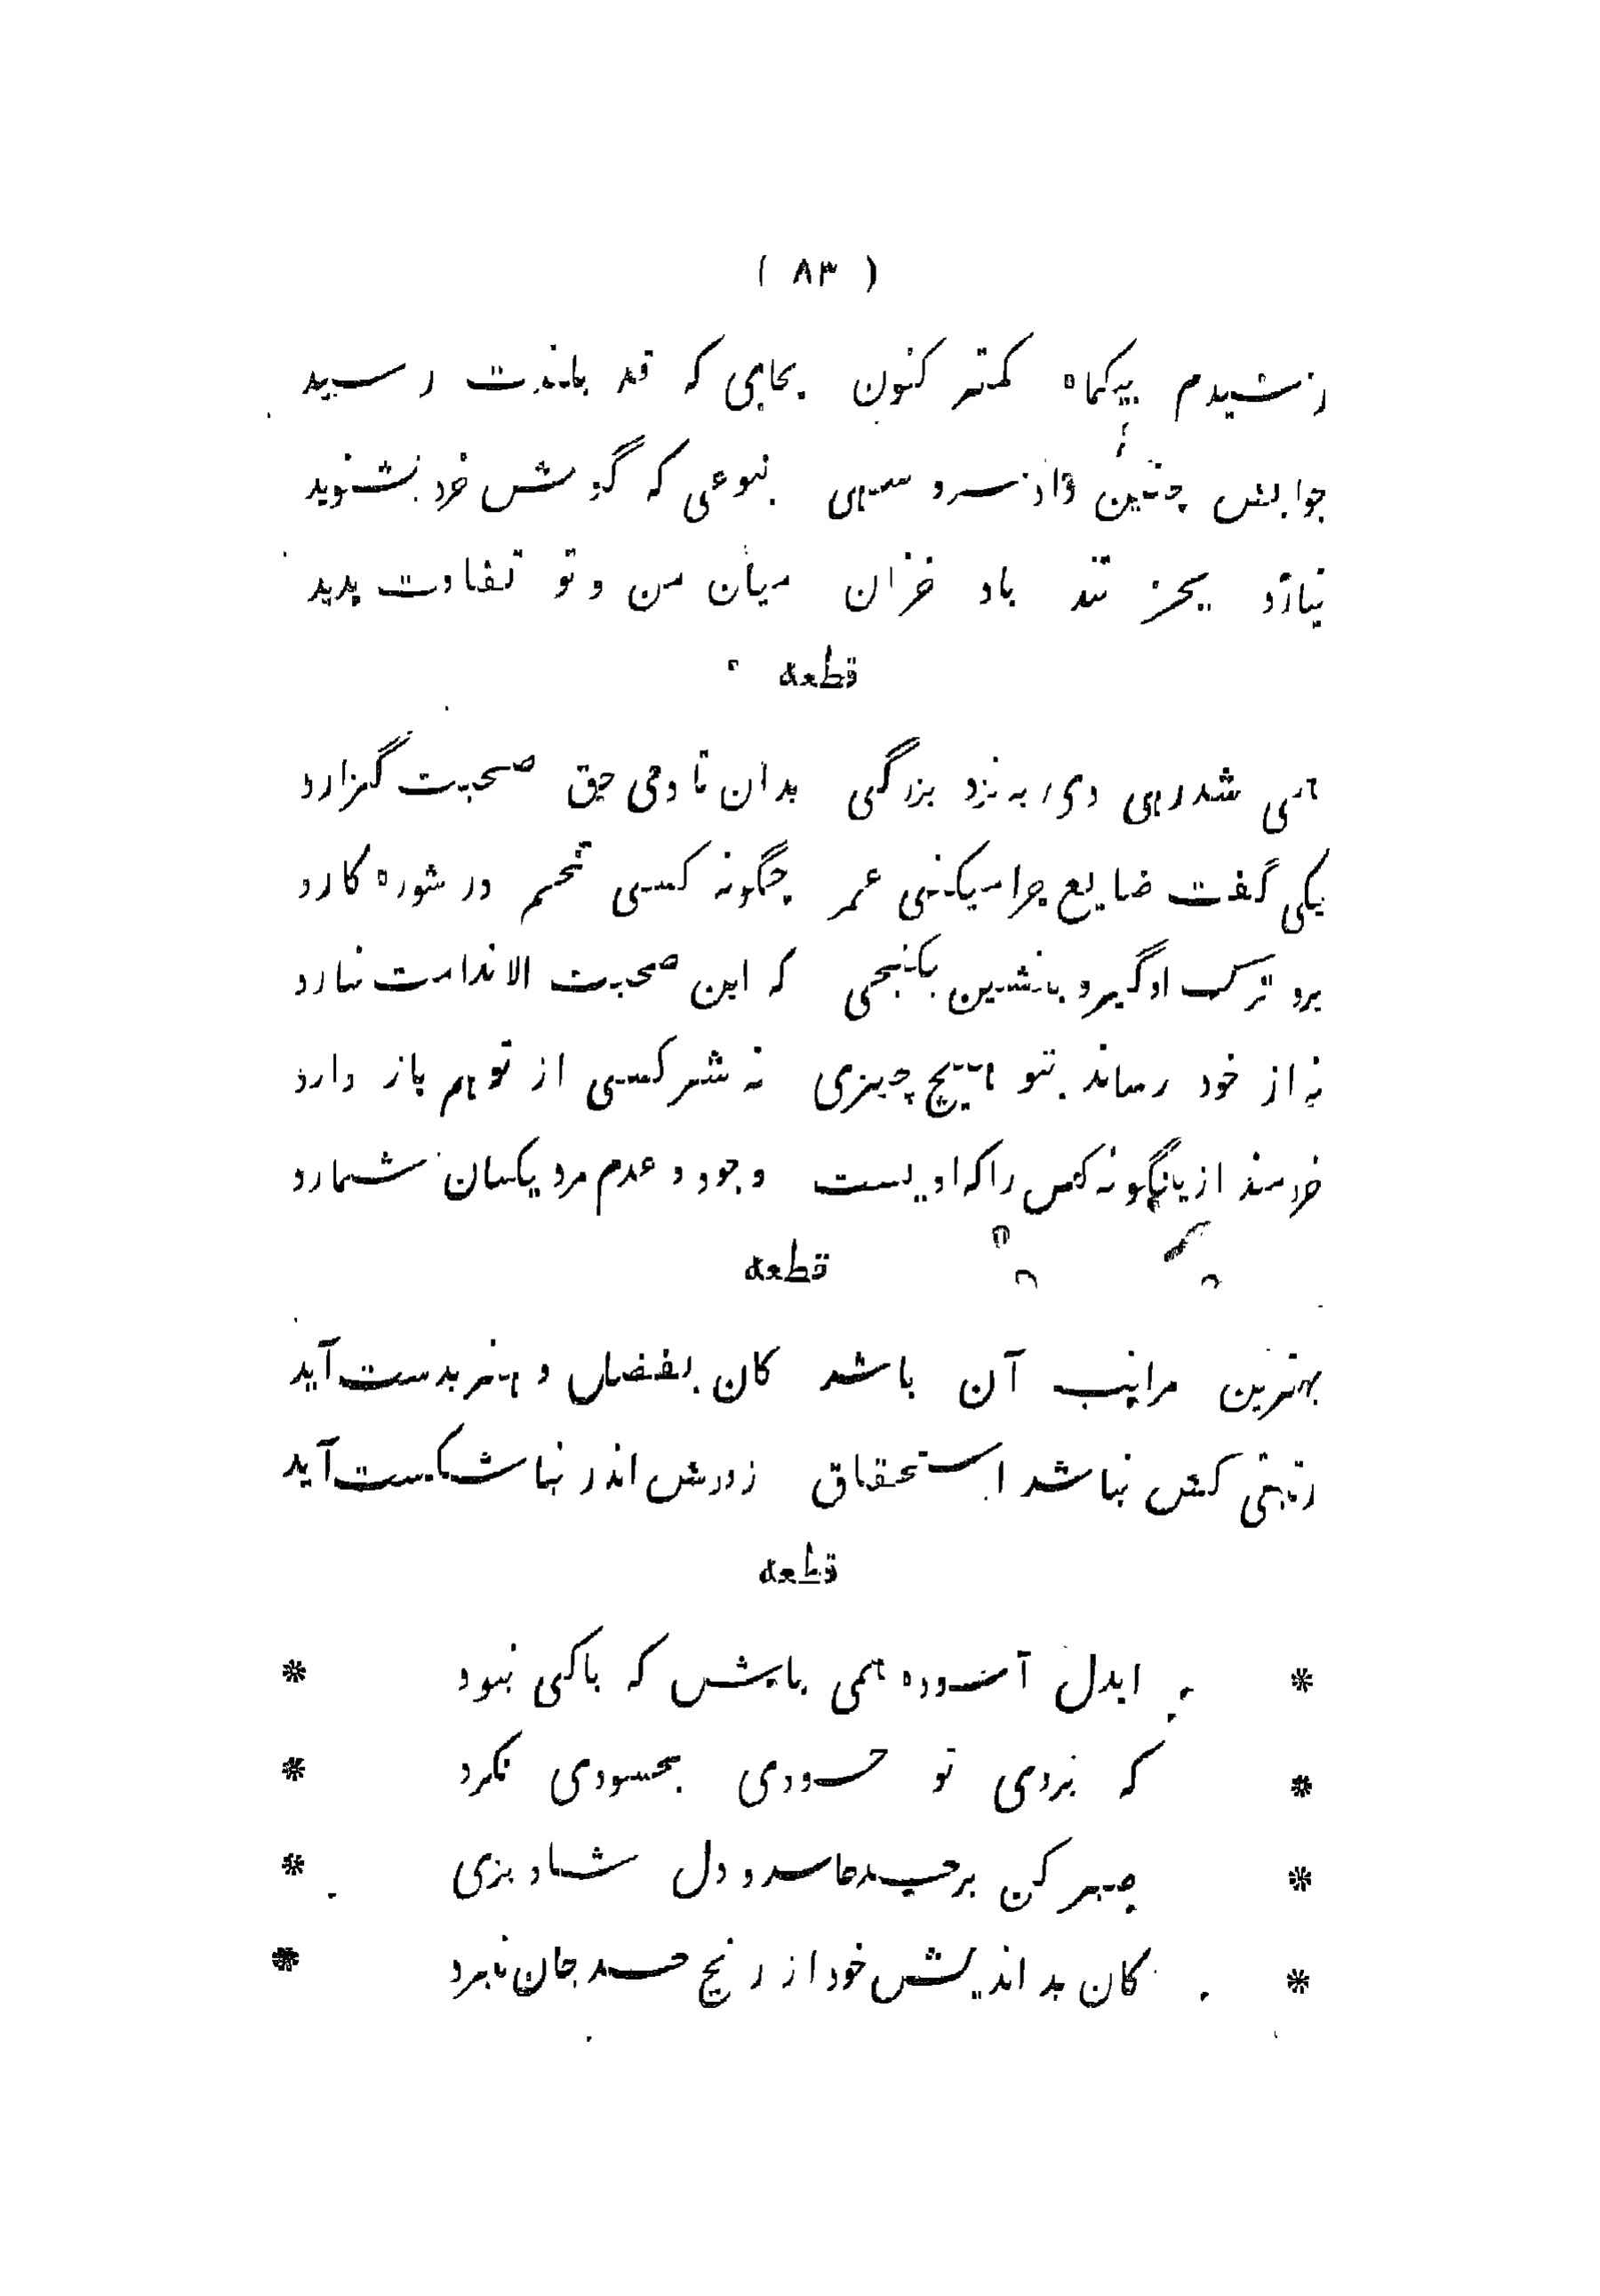 ( ۸۳ )
رسیدم بیکماه کمتر کنون بجایی که قد بلندت رسید
جوابش چنین داد سرو سهی بنوعی که گوش خرد بشنوید
نیارد بجز تند باد خزان میان من و تو تفاوت پدید
قطعه
همی شد رهی دی به نزد بزرگی بدان تا دمی حق صحبت گزارد
یکی گفت ضایع چرا میکنی عمر چگونه کسی تخم در شوره کارد
برو ترک او گیر و بنشین بکنجی که این صحبت الا ندامت نیارد
نه از خود رساند بتو هیچ چیزی نه شر کسی از تو هم باز دارد
خردمند ازینگونه کس را که او یست وجود و عدم مرد یکسان شمارد
قطعه
بهترین مراتب آن باشد کان بفضل و هنر بدست آید
رتبتی کش نباشد استحقاق زودش اندر بنا شکست آید
قطعه
* ایدل آسوده همی باش که باکی نبود *
* که نبردی تو حسودی بحسودی نکرد *
* صبر کن بر حسد حاسد و دل شاد بزی *
* کان بد اندیش خود از رنج حسد جان نبرد *